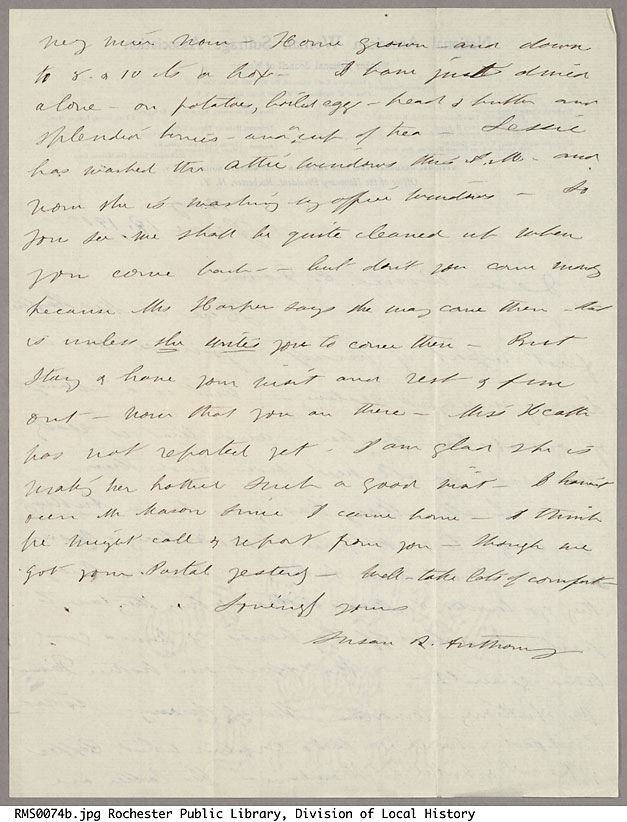 very nice now — Home grown and down
to 8. & 10 cts a box — I have just dined
alone — on potatoes, boiled egg — bread & butter and
splendid berries — and a cup of tea — Jessie
has washed the attic windows this A.M. — and
now she is washing my office windows — So
you see we shall be quite cleaned up when
you come back — — but don't you come
because Mrs Harper says she may come then — that
is unless she writes you to come then — But
stay & have your visit and rest & fun
out — now that you are there — Miss Heath
has not reported yet — I am glad she is
making her mother such a good visit — I haven't
seen Mr Mason since I came home — I think
he might call & report from you — though we
got your Postal yesterday — Well — take lots of comfort —
Lovingly yours
Susan B. Anthony
RMS0074b.jpg Rochester Public Library, Division of Local History